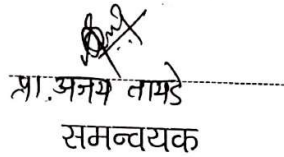 प्रा. अजय तायडे
समन्वयक